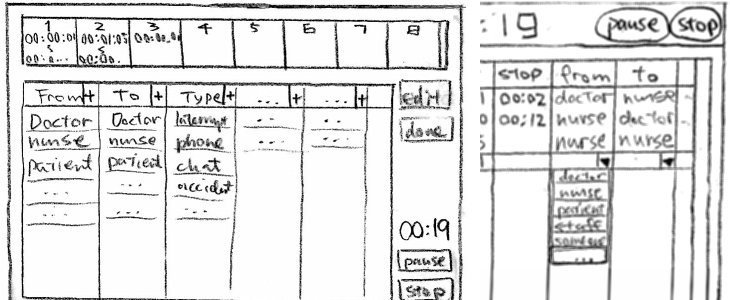 1 2 3 4 5 6 7 8
00:00:01 00:01:05 00:00:01
From + To + Type + ... + ... +
edit
Doctor Doctor Interrupt .. ..
done
nurse nurse phone ... ...
patient patient chat
... ... accident
... ... ...
00:19
pause
stop
:19 pause stop
stop from to
00:02 doctor nurse
00:12 nurse doctor
nurse nurse
doctor
nurse
patient
staff
...